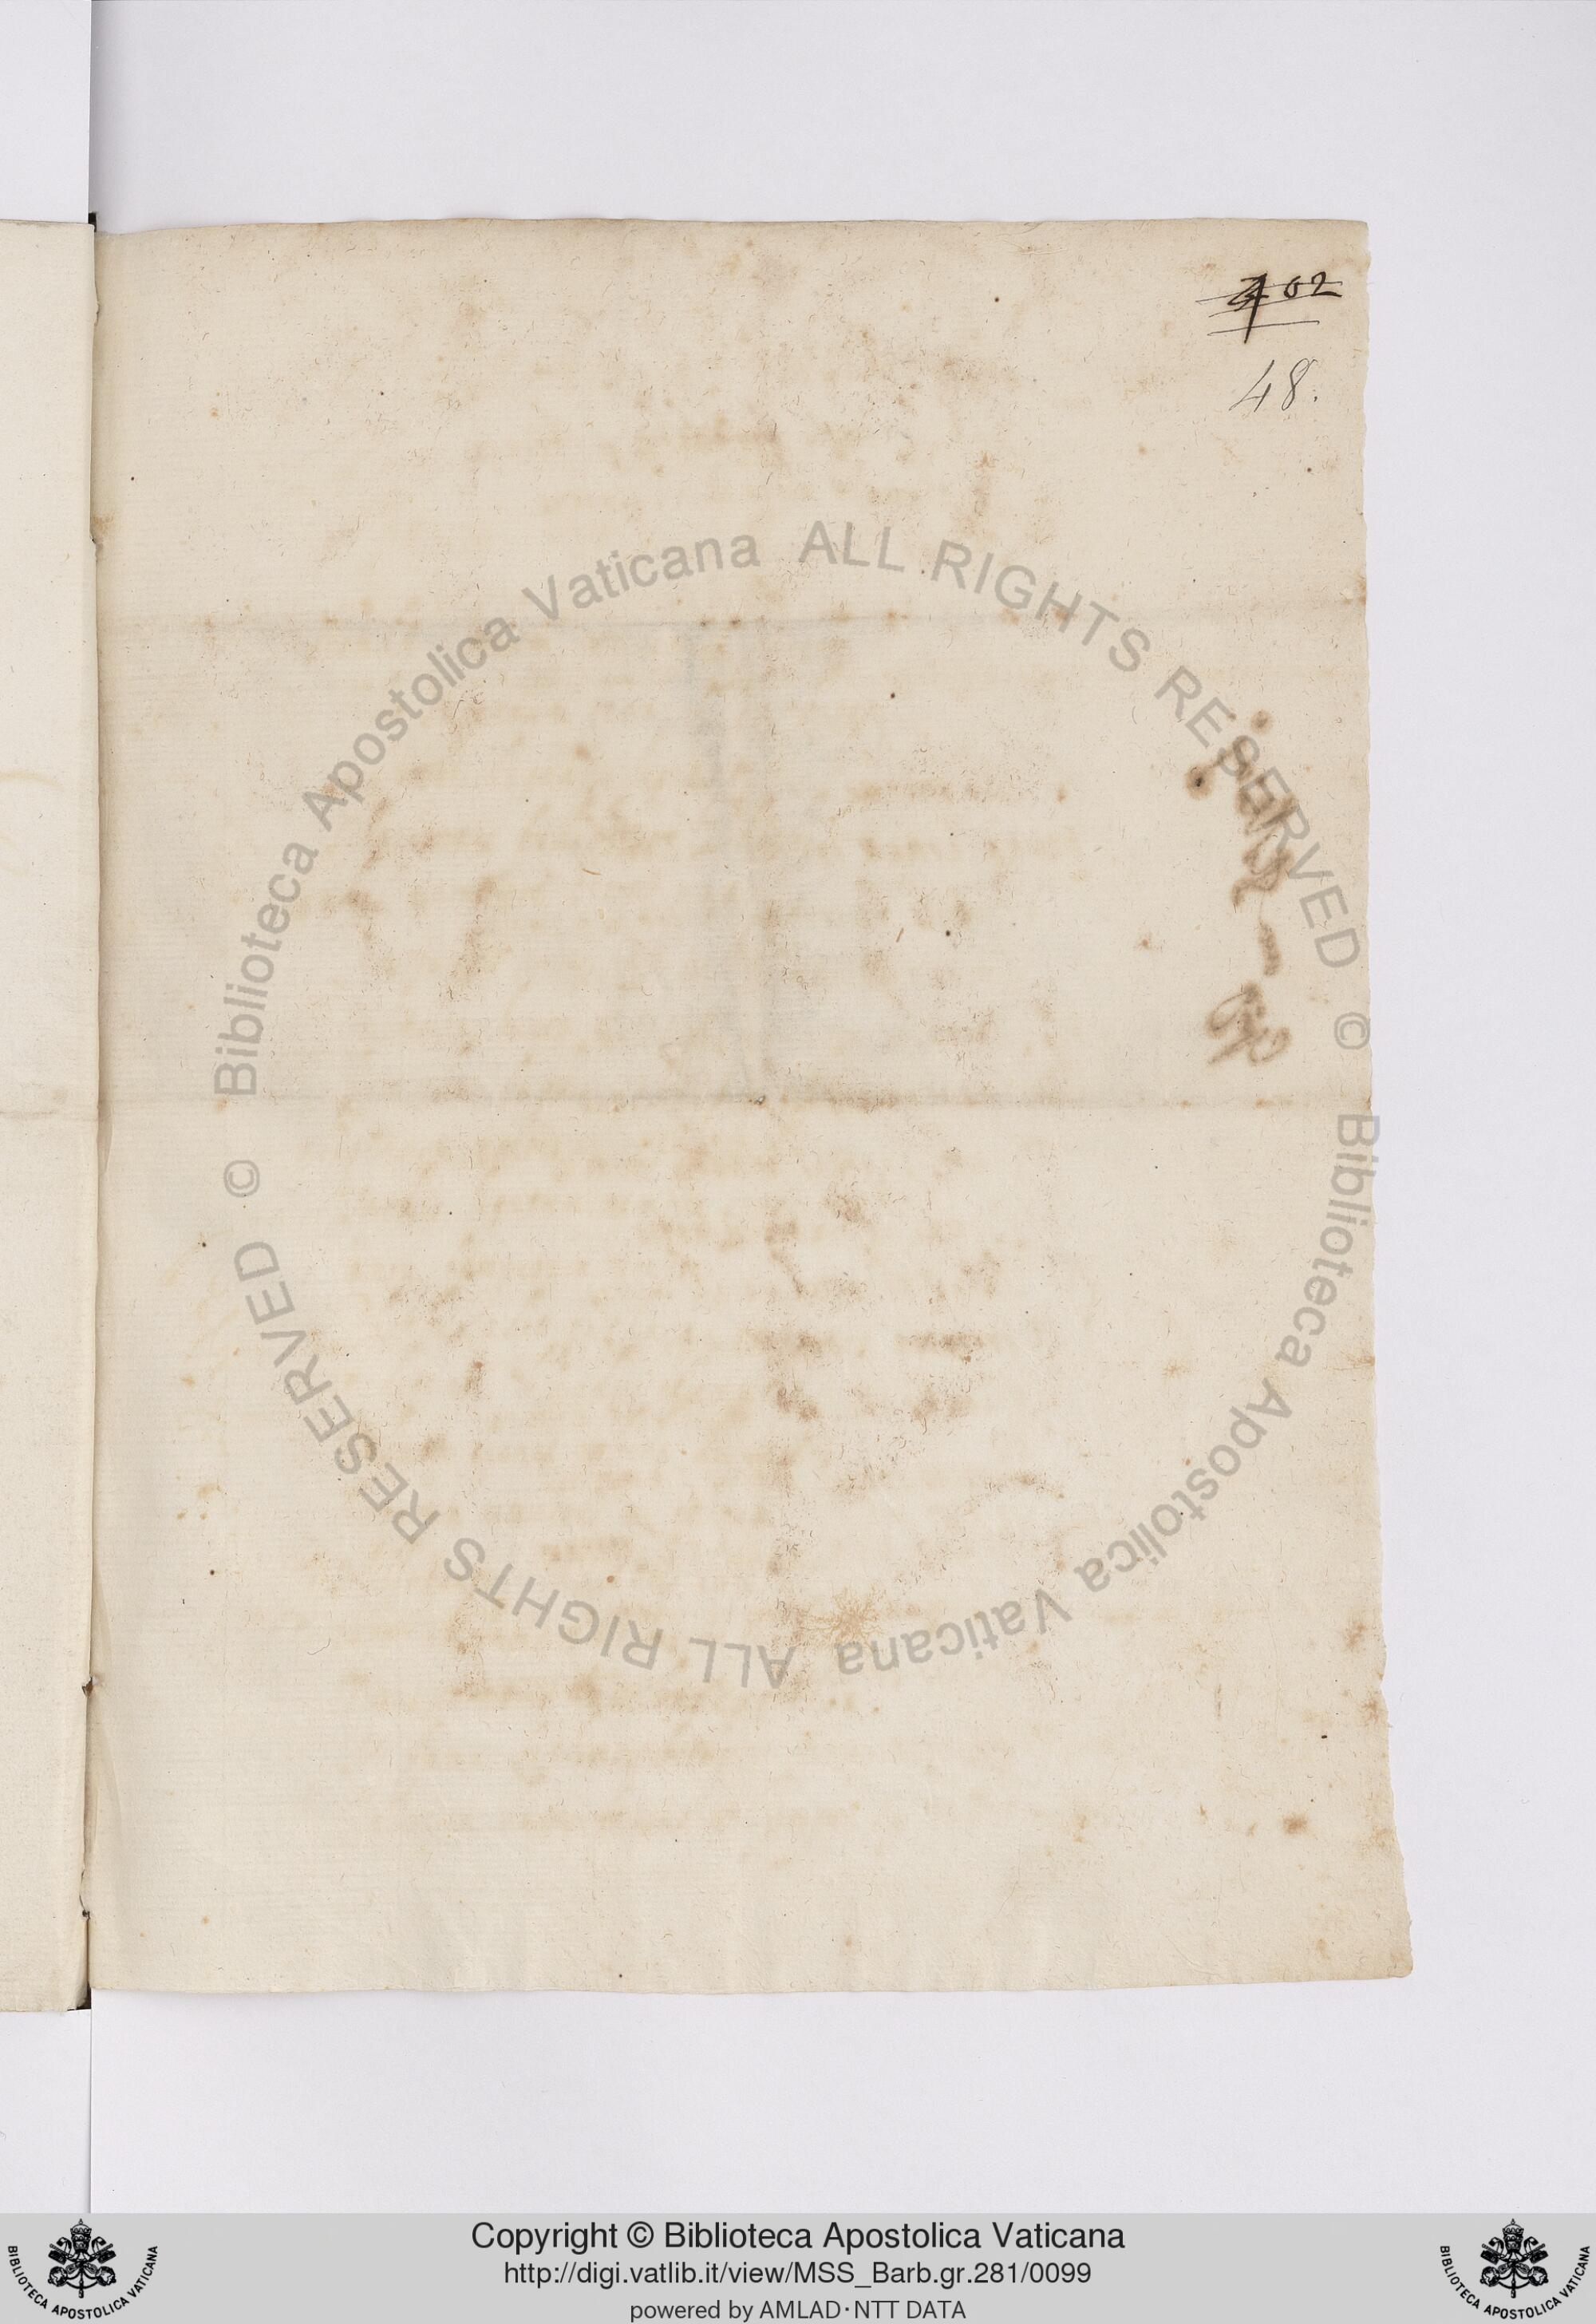 402
48.
Biblioteca Apostolica Vaticana ALL RIGHTS RESERVED ©
Biblioteca Apostolica Vaticana ALL RIGHTS RESERVED ©
Copyright © Biblioteca Apostolica Vaticana
http://digi.vatlib.it/view/MSS_Barb.gr.281/0099
powered by AMLAD·NTT DATA
BIBLIOTECA APOSTOLICA VATICANA
BIBLIOTECA APOSTOLICA VATICANA